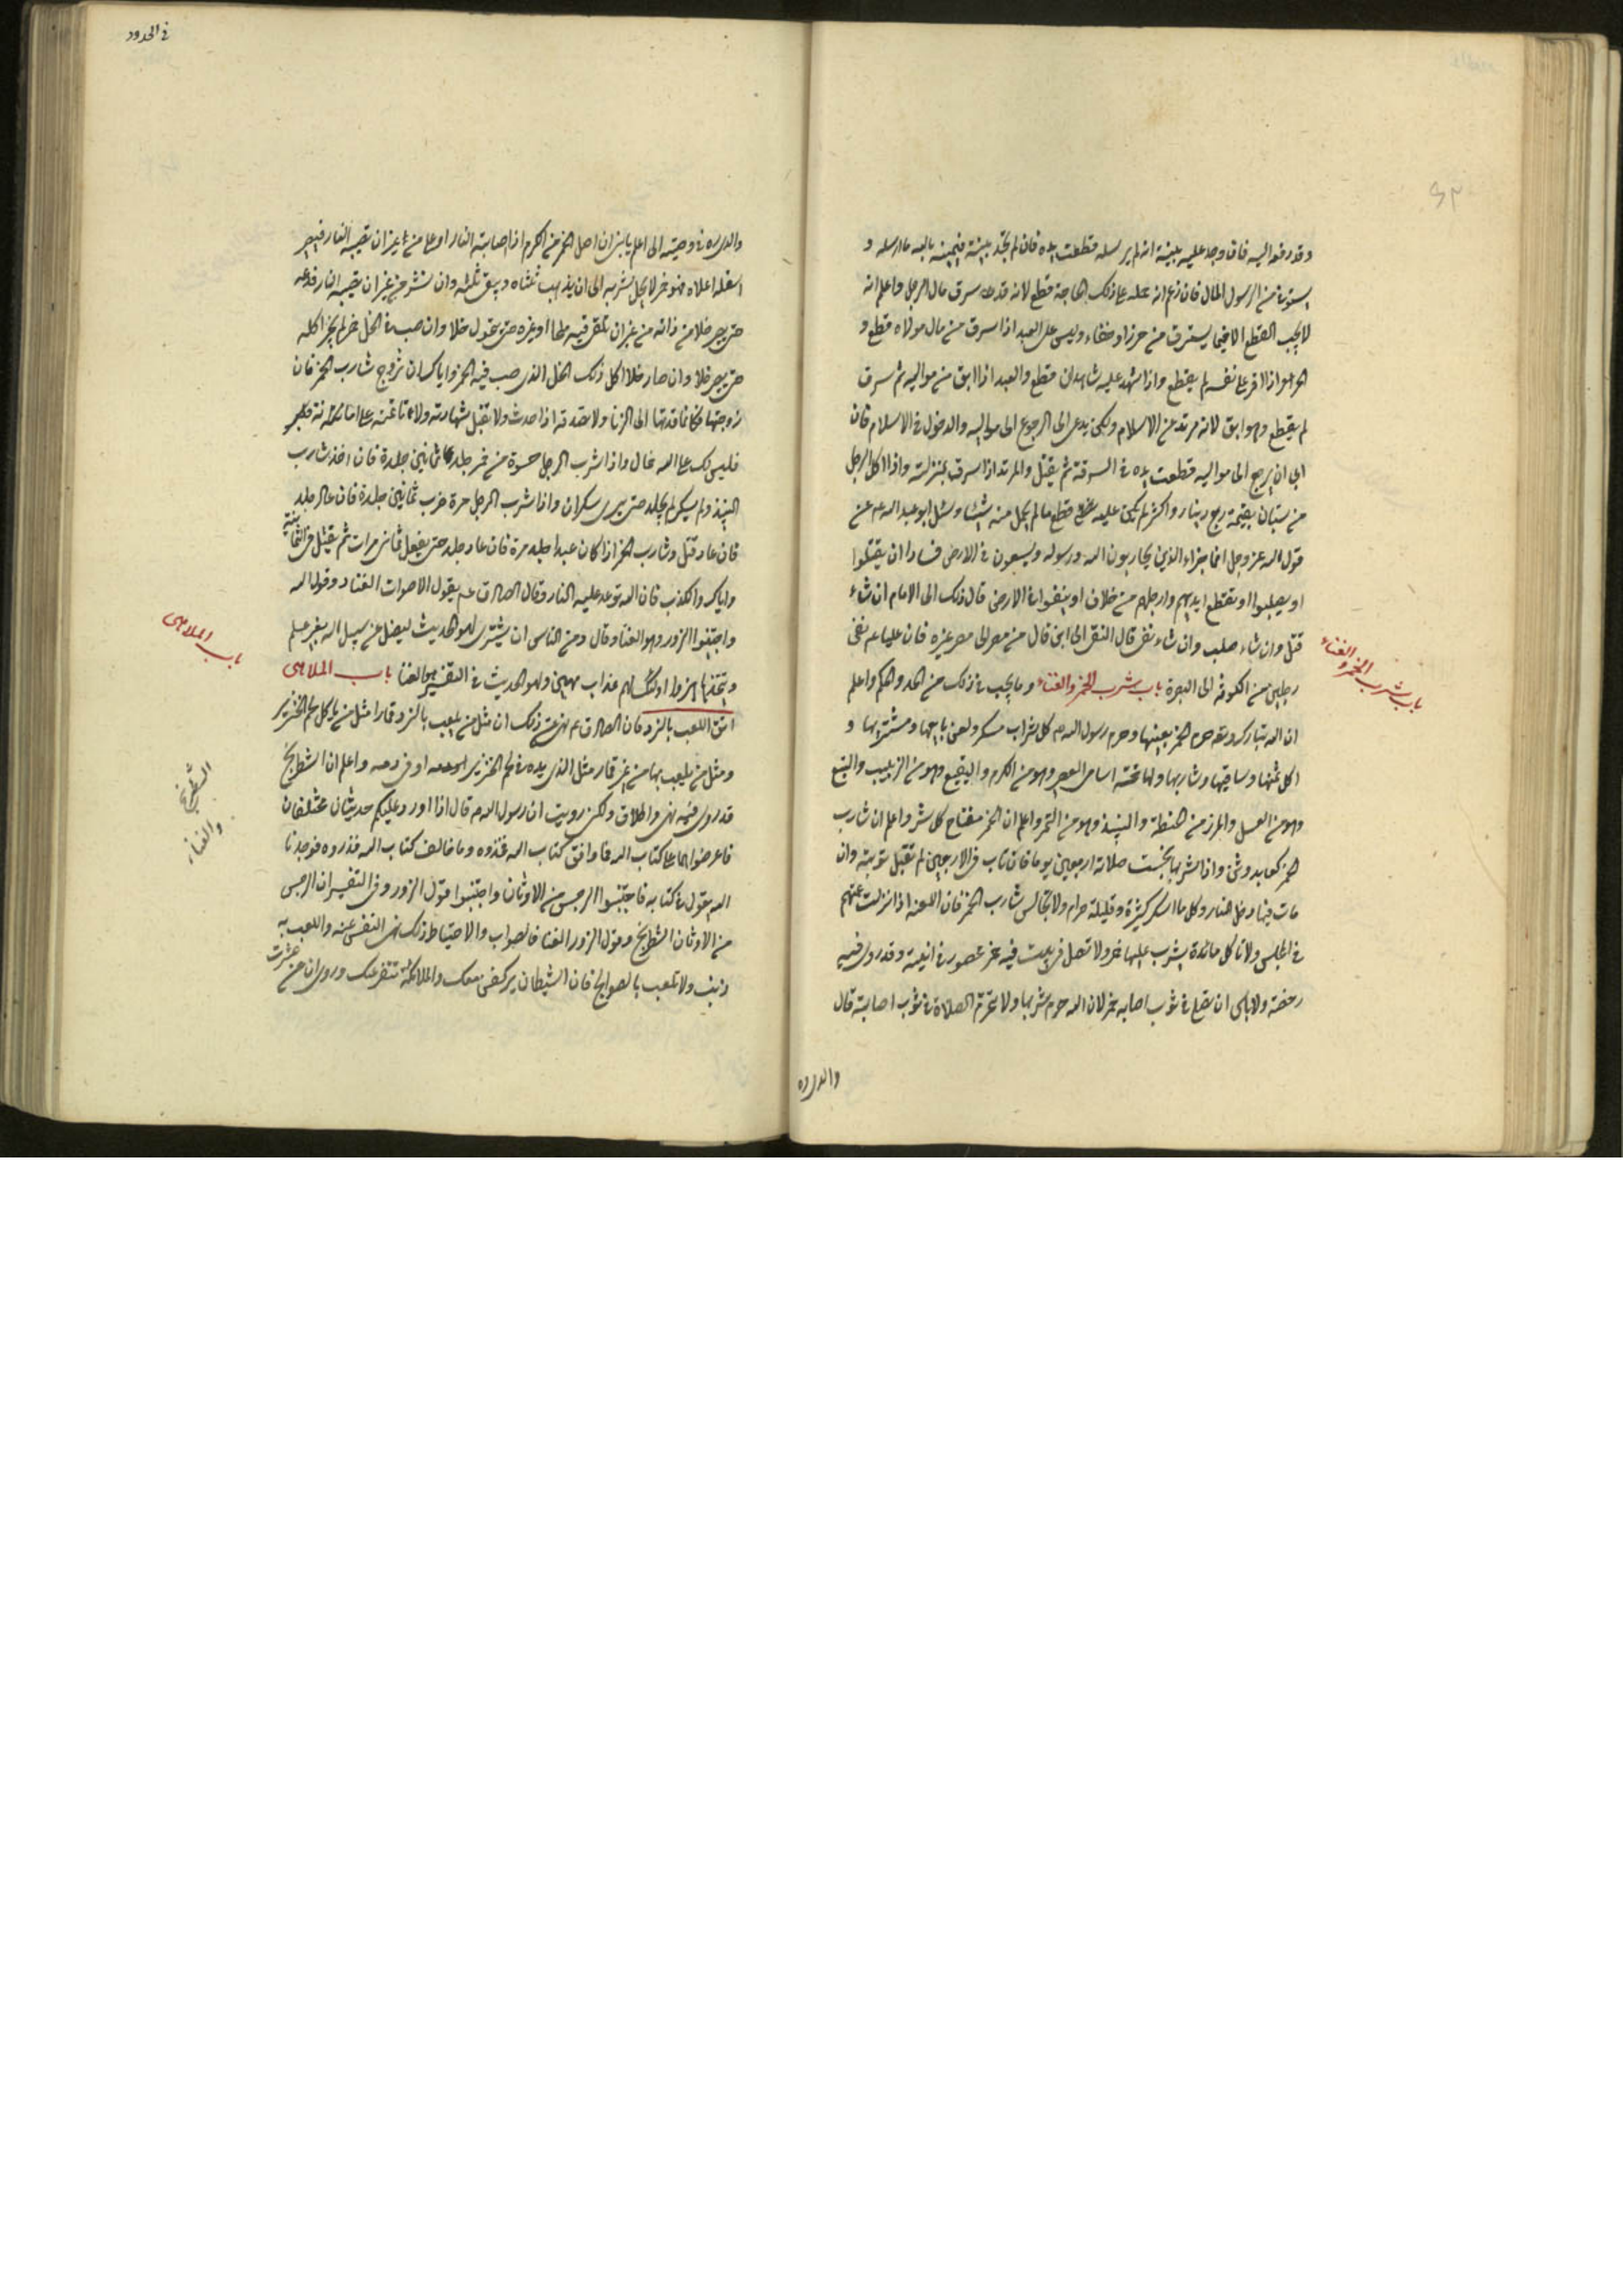 وقد دفعه اليه فان وجد عليه بينة انه لم يرسله قطعت يده فان لم يجد بينة فيمينه بالله ما ارسله و
يستوفى من الرسول المال فان زعم انه حمله على ذلك الحاجة قطع لانه قد سرق مال الرجل واعلم انه
لا يجب القطع الا فيما يسترق من حرز او خفاء وليس على العبد اذا سرق من مال مولاه قطع و
الحر اذا اقر على نفسه لم يقطع واذا شهد عليه شاهدان قطع والعبد اذا ابق من مواليه ثم سرق
لم يقطع وهو ابق لانه مرتد عن الاسلام ولكن يدعى الى الرجوع الى مواليه والدخول في الاسلام فان
ابى ان يرجع الى مواليه قطعت يده في السرقة ثم يقتل والمرتد اذا سرق بمنزلته واذا اكل الرجل
من بستان بقيمة ربع دينار واكثر لم يكن عليه قطع ما لم يحمل منه شيئا وسئل ابو عبد الله عم عن
قول الله عز وجل انما جزاء الذين يحاربون الله ورسوله ويسعون في الارض فسادا ان يقتلوا
او يصلبوا او تقطع ايديهم وارجلهم من خلاف او ينفوا من الارض قال ذلك الى الامام ان شاء
قتل وان شاء صلب وان شاء نفى قال النفى الى اين قال من مصر الى مصر غيره فان عليا عم نفى
رجلين من الكوفة الى البصرة باب شرب الخمر والغناء وما يجب في ذلك من الحد والحكم واعلم
باب شرب الخمر والغناء
ان الله تبارك وتعه حرم الخمر بعينها وحرم رسول الله ص كل شراب مسكر ولعن بايعها ومشتريها و
اكل ثمنها وساقيها وشاربها ولها خمسة اسامى العصير وهو من الكرم والنقيع وهو من الزبيب والبتع
وهو من العسل والمزر من الحنطة والنبيذ وهو من التمر واعلم ان الخمر مفتاح كل شر واعلم ان شارب
الخمر كعابد وثن واذا شربها حبست صلاته اربعين يوما فان تاب في الاربعين لم تقبل توبته وان
مات فيها دخل النار وكل ما اسكر كثيره وقليله حرام ولا تجالس شارب الخمر فان اللعنة اذا نزلت عمتهم
في المجلس ولا تاكل مائدة يشرب عليها خمر ولا تصل في بيت فيه خمر محصور في انية وقد روى فيه
رخصة ولا باس ان تصلى في ثوب اصابه خمر لان الله حرم شربها ولا تحرم الصلاة في ثوب اصابته قال
والدى ره
في الحدود
والدى ره في وصيته الى اعلم يا بنى ان اصل الخمر من الكرم اذا اصابته النار او غلى من غير ان تصيبه النار فيصير
اسفله اعلاه فهو خمر لا يحل شربه الى ان يذهب ثلثاه ويبقى ثلثه وان نش من غير ان تصيبه النار فدعه
حتى يصير خلا من ذاته من غير ان تلقى فيه ملحا او غيره حتى يتحول خلا وان صب في الخل خمر لم يجز اكله
حتى يصير خلا وان صار خلا اكل ذلك الخل الذى صب فيه الخمر واياك ان تزوج شارب الخمر فان
زوجتها فكانما قدتها الى الزنا ولا تصدقه اذا حدث ولا تقبل شهادته ولا تاتمنه على امانة
فليس لك على الله ضمان واذا شرب الرجل حسوة من خمر جلد ثمانين جلدة فان اخذ شارب
النبيذ ولم يسكر لم يجلد حتى يرى سكران واذا شرب الرجل مرة ضرب ثمانين جلدة فان عاد جلد
فان عاد قتل وشارب الخمر اذا كان عبدا جلد مرة فان عاد جلد حتى يفعل ثمانى مرات ثم يقتل في الثامنة
واياك والكذب فان الله توعد عليه النار وقال الصادق عم يقول الاصوات الغناء وقول الله
واجتنبوا الزور وهو الغناء وقال ومن الناس من يشترى لهو الحديث ليضل عن سبيل الله بغير علم
ويتخذها هزوا اولئك لهم عذاب مهين ولهو الحديث في التفسير هو الغنا باب الملاهى
باب الملاهى
اتق اللعب بالنرد فان الصادق عم نهى عن ذلك ان مثل من يلعب بالنرد قمارا مثل من ياكل لحم الخنزير
ومثل من يلعب بها من غير قمار مثل الذى يده في لحم الخنزير او في دمه واعلم ان الشطرنج
الشطرنج والغناء
قد روى فيه نهى واطلاق ولكن رويت ان رسول الله ص قال اذا اورد عليكم حديثان مختلفان
فاعرضوهما على كتاب الله فما وافق كتاب الله فخذوه وما خالف كتاب الله فذروه فوجدنا
الله يقول في كتابه فاجتنبوا الرجس من الاوثان واجتنبوا قول الزور وفى التفسير ان الرجس
من الاوثان الشطرنج وقول الزور الغنا فالصواب والاحتياط في ذلك نهى النفس عنه واللعب به
ذنب ولا تلعب بالصوالج فان الشيطان يركض معك والملائكة تنفر عنك وروى ان من عثرت